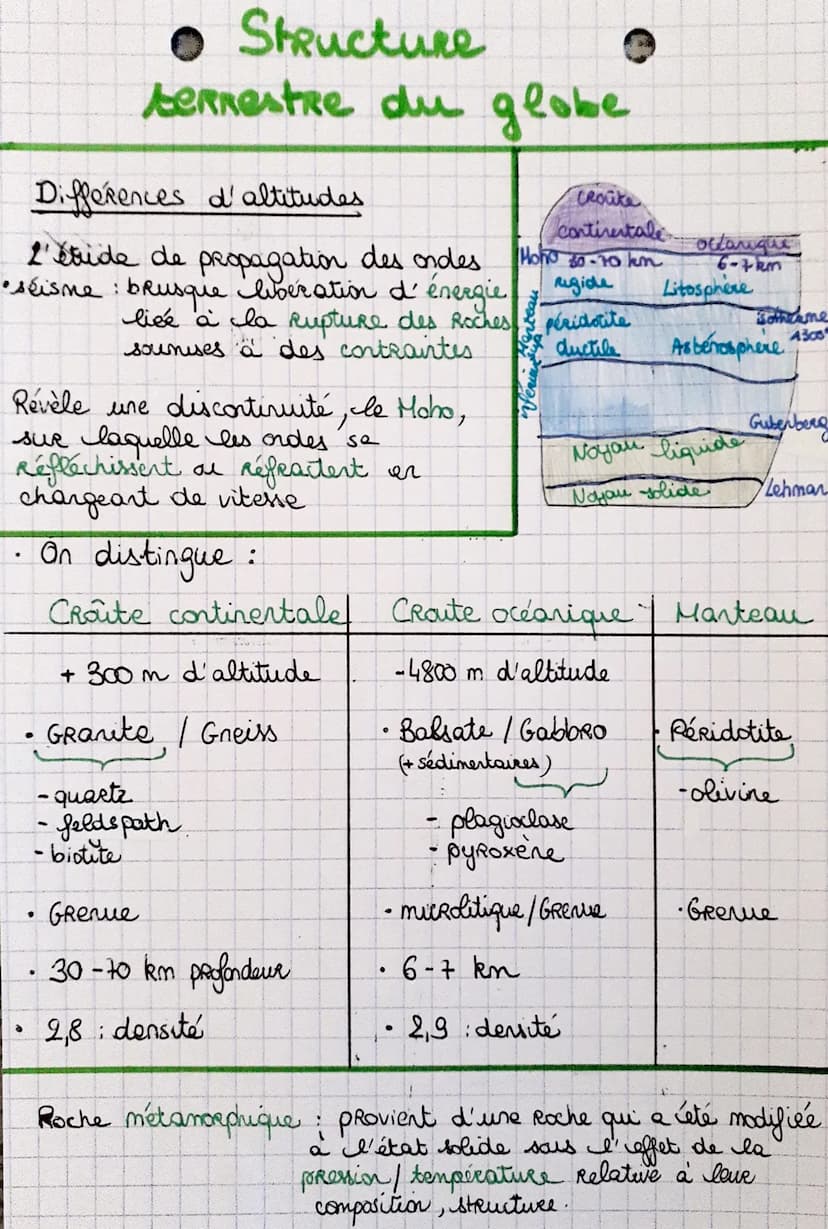 Structure
terrestre du globe
Différences d'altitudes
L'étude de propagation des ondes
• séisme : brusque libération d'énergie
liée à la rupture des roches
soumises à des contraintes
Révèle une discontinuité, le Moho,
sur laquelle les ondes se
réfléchissent ou réfractent en
changeant de vitesse
croûte
continentale
océanique
Moho 30-70 km 6-7 km
rigide Litosphère
péridotite isotherme
1300°
ductile Asténosphère
Manteau
inférieur
Gutenberg
Noyau liquide
Noyau solide Lehman
• On distingue :
Croûte continentale Croute océanique Manteau
+ 300 m d'altitude -4800 m d'altitude
• Granite / Gneiss • Balsate / Gabbro • Péridotite
(+ sédimentaires)
- quartz - olivine
- feldspath - plagioclase
- biotite - pyroxène
• Grenue • microlitique / Grenue • Grenue
• 30-70 km profondeur • 6-7 km
• 2,8 : densité • 2,9 : densité
Roche métamorphique : provient d'une roche qui a été modifiée
à l'état solide sous l'effet de la
pression / température relative à leur
composition, structure.